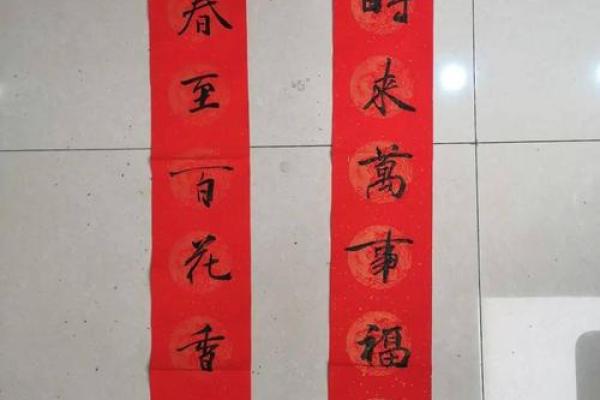 時來萬事福
春至百花香